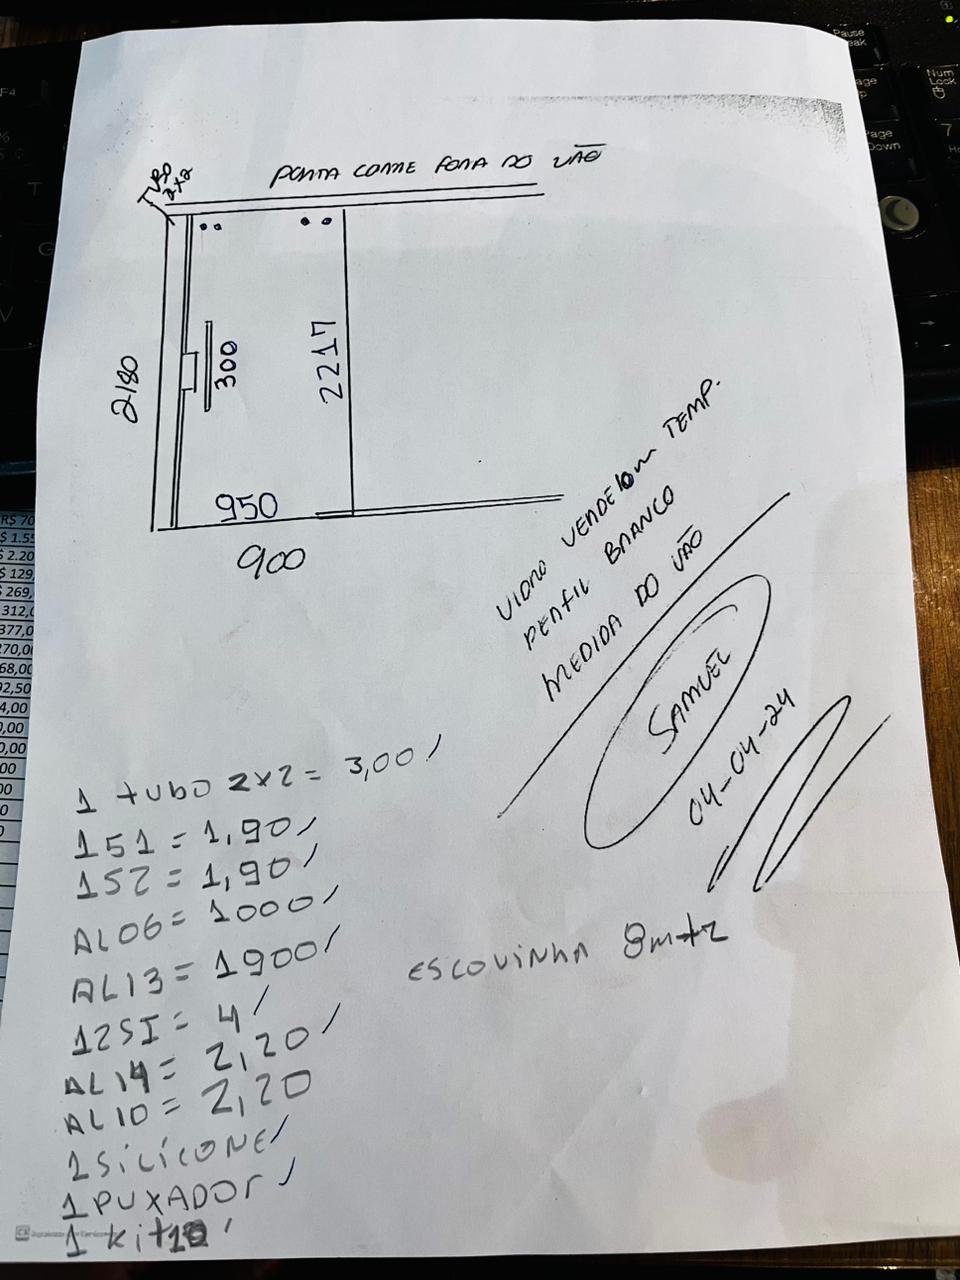 TUBO
2x2
PORTA CORRE FORA DO VÃO
2180
300
2217
950
900
VIDRO VERDE 10m TEMP.
PERFIL BRANCO
MEDIDA DO VÃO
SAMUEL
04-04-24
1 tubo 2x2 = 3,00
151 = 1,90
152 = 1,90
AL06 = 1000
AL13 = 1900
ESCOVINHA 8mtr
12SI = 4
AL14 = 2,20
AL10 = 2,20
1 SiLiCONE
1 PUXADOr
1 kit
R$ 70
$ 1.55
$ 2.20
$ 129,
$ 269,
312,0
377,0
270,0
68,00
92,50
4,00
0,00
0,00
00
00
0
Pause
Num
Lock
7
Down
F4